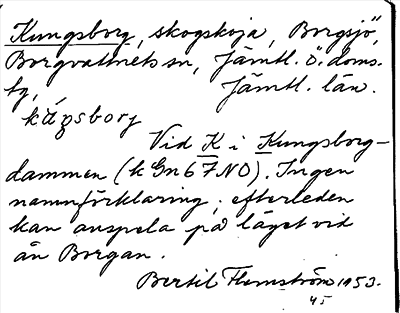 Kungsborg, skogskoja, Borgsjö,
Borgvattnets sn, Jämtl. ö. doms.
tg, Jämtl. län.
kaŋsborg
Vid K i Kungsborg-
dammen (k Gn 6 7 NO). Ingen
namnförklaring; efterleden
kan anspela på läget vid
ån Borgan.
Bertil Flemström 1953.
45